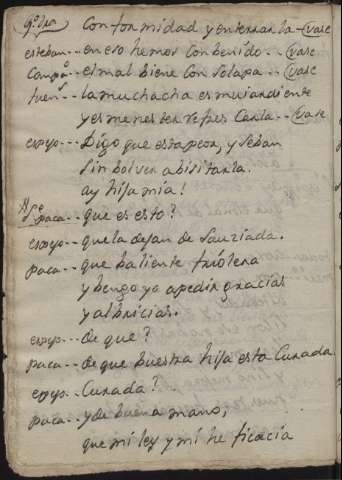 Conformidad y enterrarla - (vase
esteban -- en eso hemos Conbenido - - (vase
Campo -- el mal biene Con solapa - - (vase
fuen -- la muchacha es mui ardiente
y es menester refres Carla - - (vase
espejo --- Digo que esta peor, y se ban
sin bolver a bisitarla.
ay hija mia!
paca -- que es esto?
espejo --- que la dejan desauziada.
paca --- que baliente friolera
y bengo yo a pedir gracias
y albricias.
espejo --- de que?
paca --- de que buestra hija esta Curada
espejo --- Curada?
paca --- y de buena mano;
que mi ley y mi heficacia